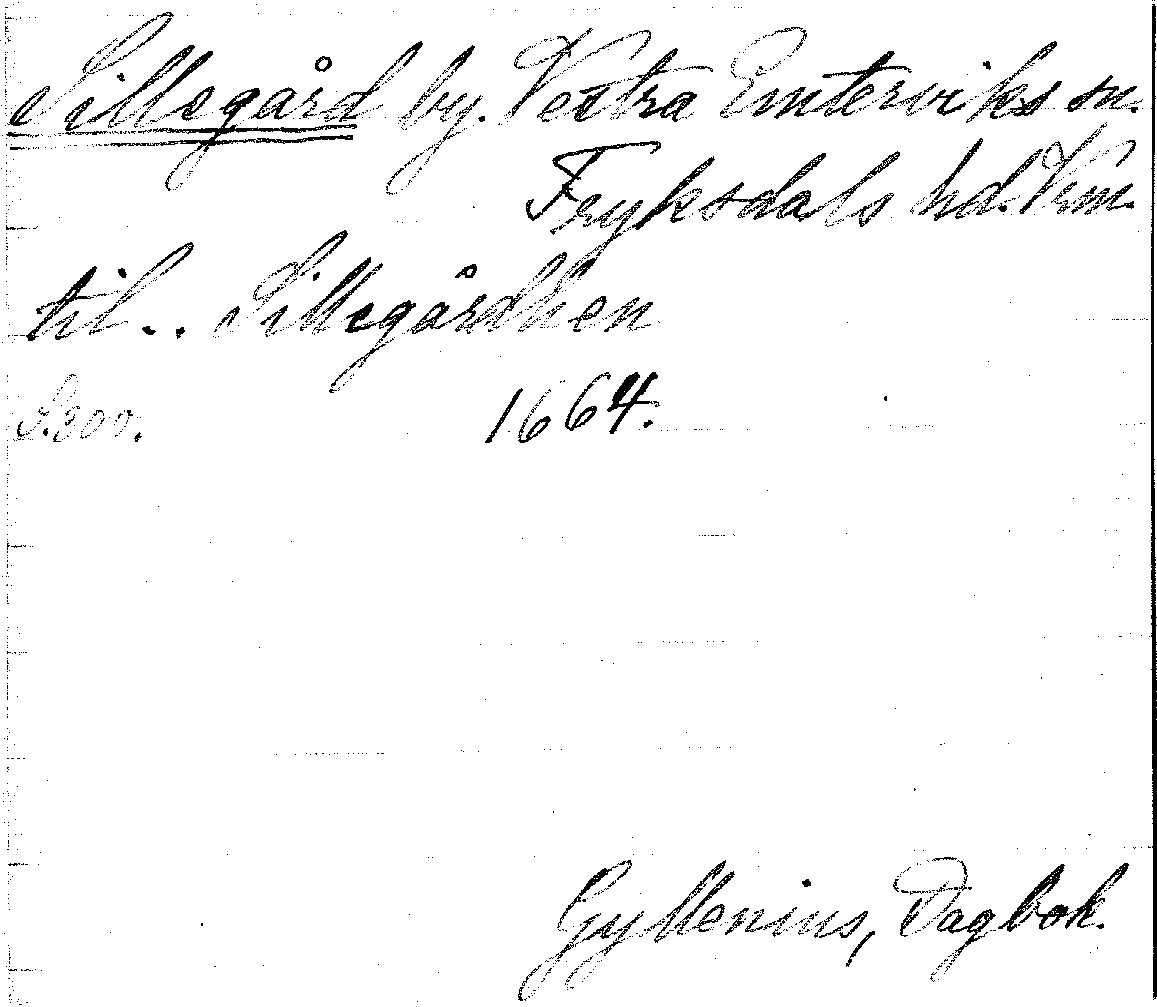 Sillegård by. Vestra Emterviks sn.
Fryksdals hd. Vrm.
til.. Sillegårdhen
S.300. 1664.
Gyllenius, Dagbok.